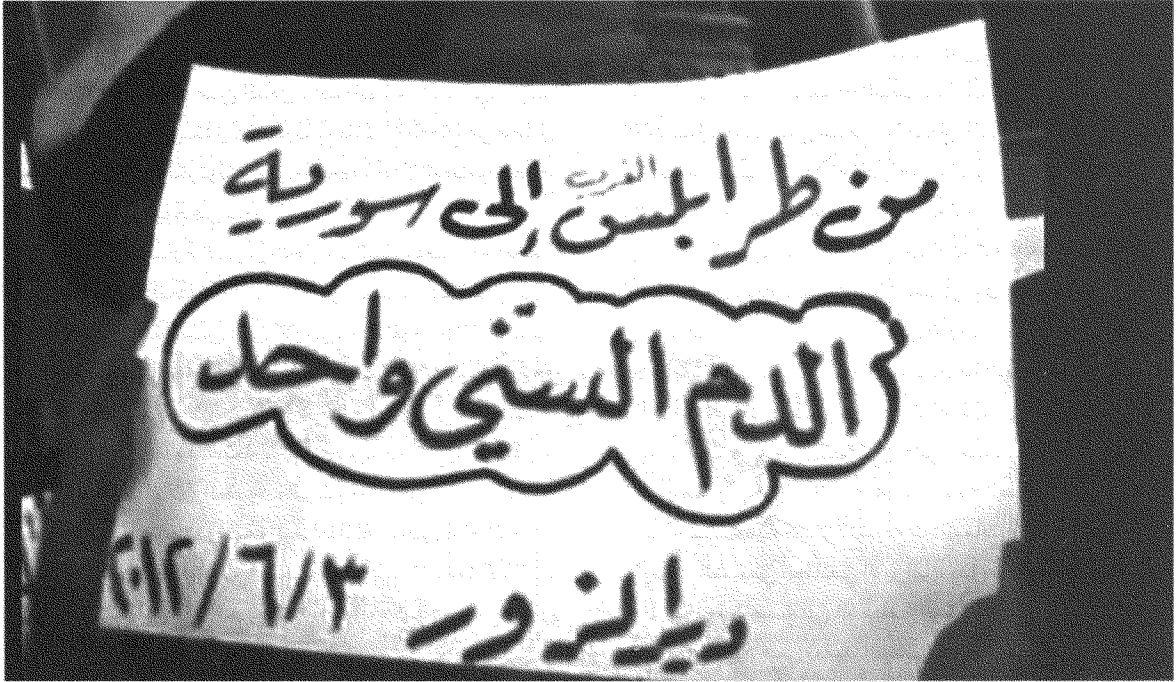 من طرابلس الغرب إلى سورية
الدم السني واحد
ديرالزور ٢٠١٢/٦/٣